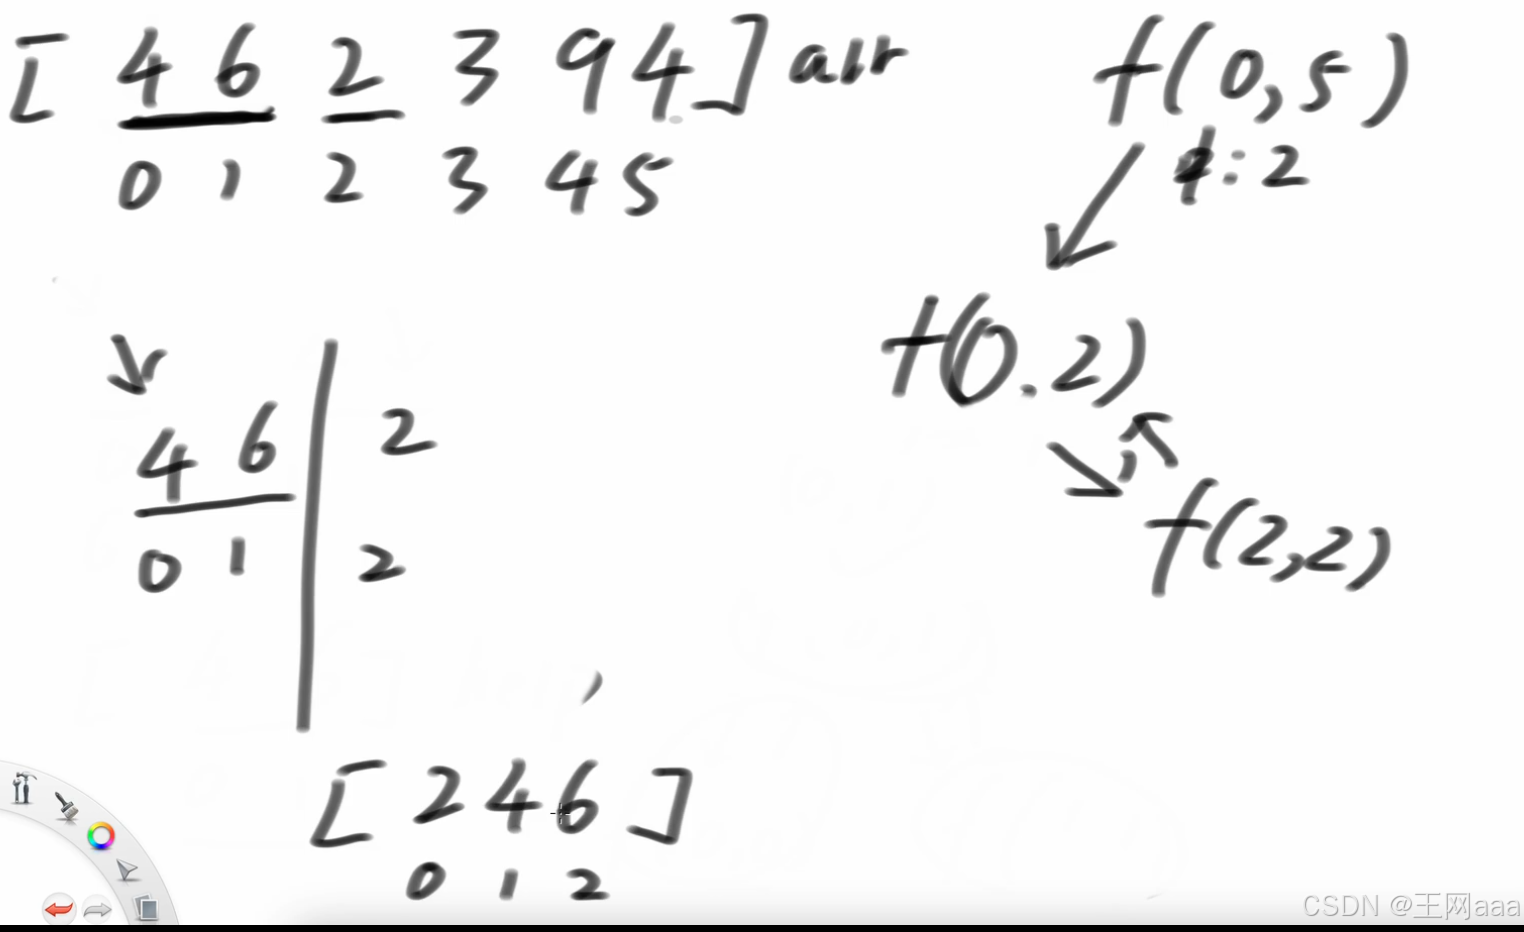 [ 4 6 2 3 9 4 ] arr
0 1 2 3 4 5
f(0,5)
: 2
f(0.2)
f(2,2)
4 6 | 2
0 1 2
[ 2 4 6 ]
0 1 2
CSDN @王网aaa